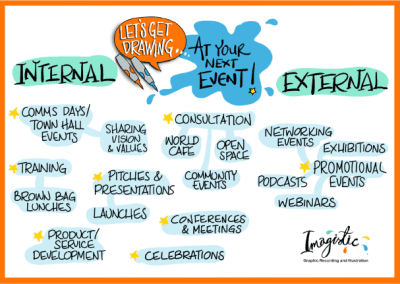 LET'S GET
DRAWING...
AT YOUR
NEXT
EVENT!
INTERNAL
EXTERNAL
COMMS DAYS/
TOWN HALL
EVENTS
SHARING
VISION
& VALUES
TRAINING
BROWN BAG
LUNCHES
PITCHES &
PRESENTATIONS
LAUNCHES
PRODUCT/
SERVICE
DEVELOPMENT
CONSULTATION
WORLD
CAFE
OPEN
SPACE
COMMUNITY
EVENTS
CONFERENCES
& MEETINGS
CELEBRATIONS
NETWORKING
EVENTS
EXHIBITIONS
PROMOTIONAL
EVENTS
PODCASTS
WEBINARS
Imagistic
Graphic Recording and Illustration